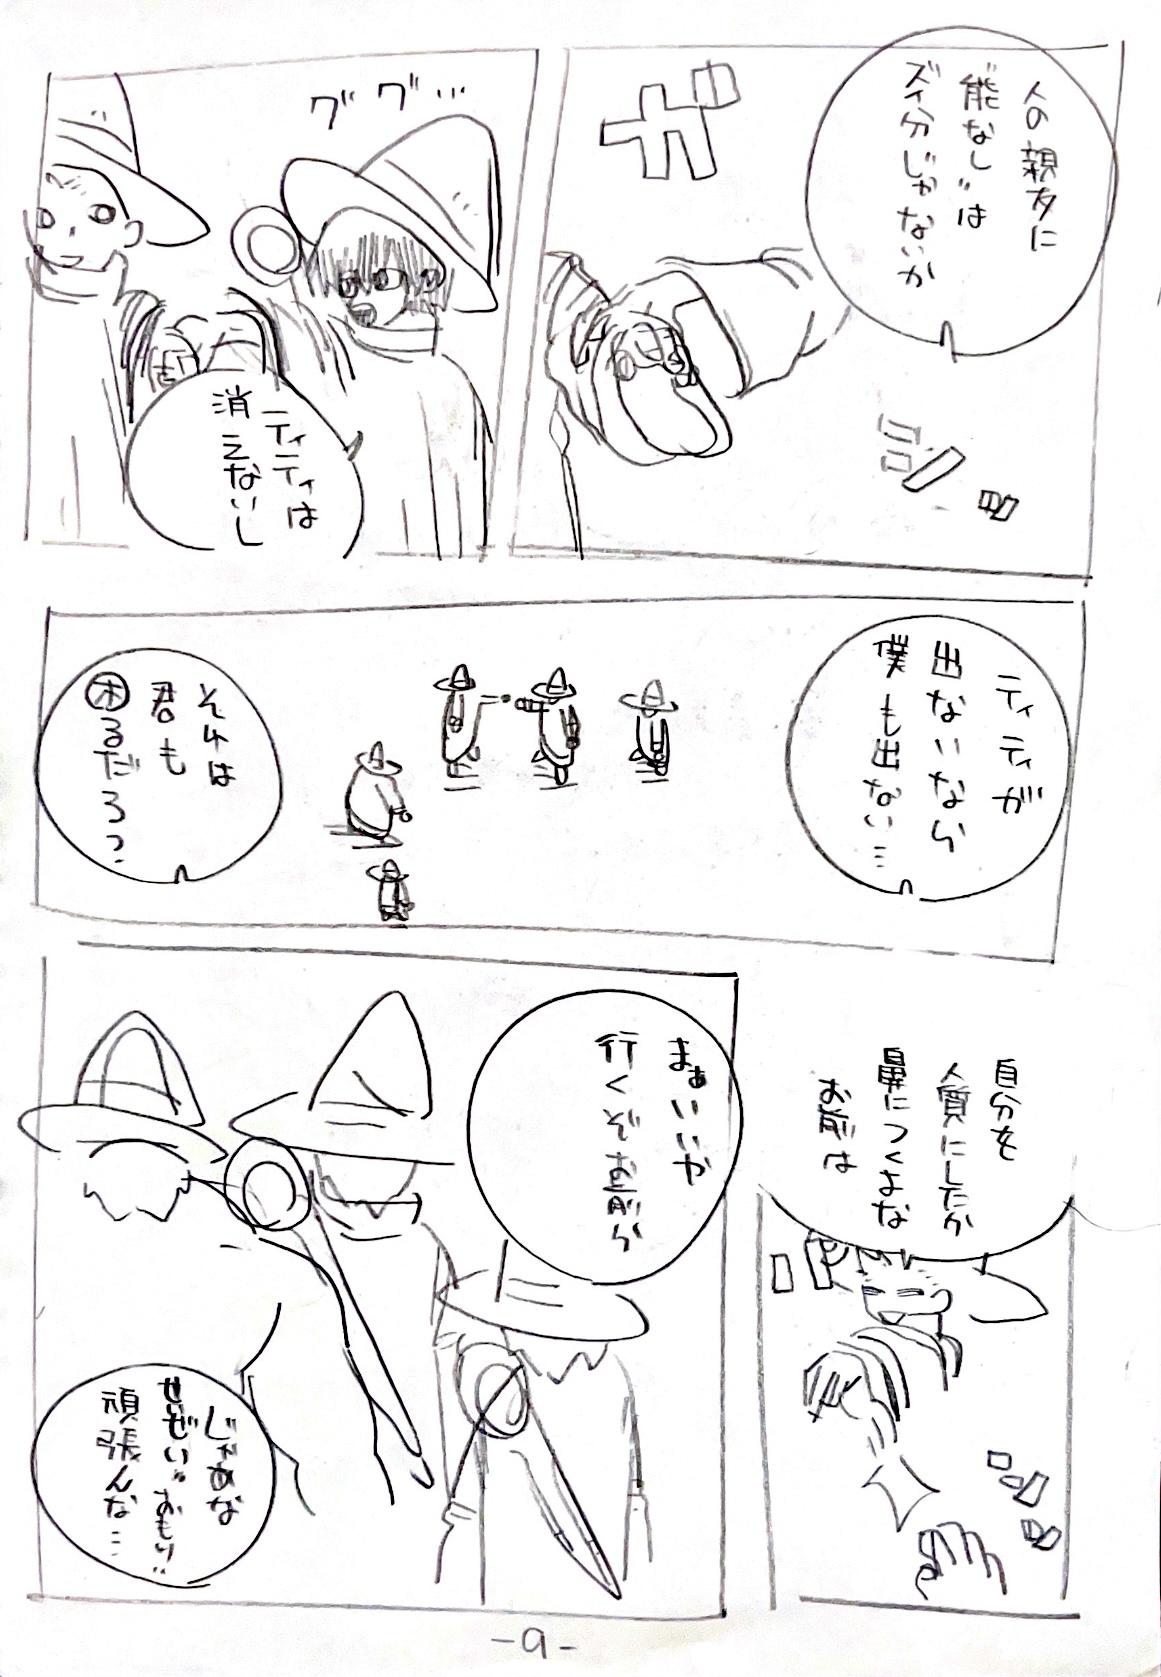 人の親友に
"能なし"は
ズイ分じゃないか
ガ
シッ
ググ…
ティティは
消えないし
ティティが
出ないなら
僕も出ない…
それは
君も
困るだろ?
自分を
人質にしたか
鼻につくよな
お前は
シッ
まぁいいか
行くぞお前ら
じゃあな
せいぜい"おもり"
頑張んな…
-9-